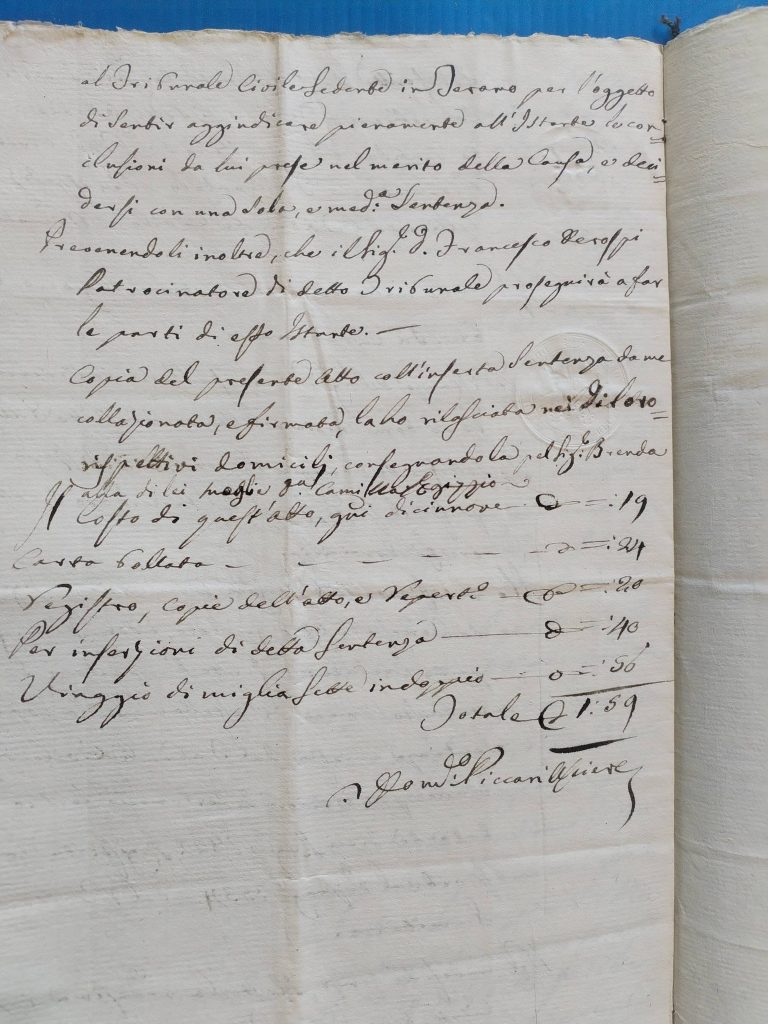 al Tribunale Civile Sedente in Teramo per l'oggetto
di Sentir aggiudicare pienamente all'Istante le con=
clusioni da lui prese nel merito della Causa, e deci=
dersi con una Sola, e med.a Sentenza.
Prevenendoli inoltre, che il Sig.r D. Francesco
Patrocinatore di detto Tribunale proseguirà a far
le parti di esso Istante. —
Copia del presente Atto coll'inserta Sentenza da me
collazionata, e firmata, la ho rilasciata nei di loro=
rispettivi domicilj, consegnandola pel Sig.r Brenda
alla di lei moglie
Il Costo di quest'atto, gni diciannove — = : 19
Carta bollata — — — — — = : 24
Registro, copie dell'atto, e Repert.o = : 20
Per inserzioni di detta Sentenza — = : 40
Viaggio di miglia Sette in doppio — = : 56
Totale 1 : 59
Dom.o Piccari Usciere